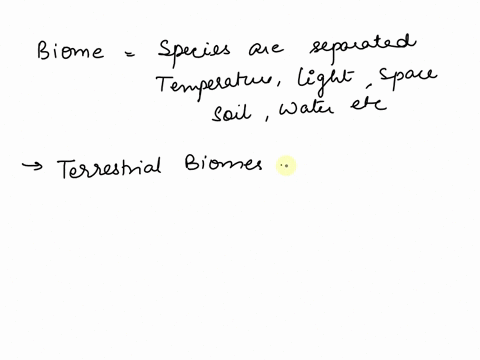 Biome = Species are separated
Temperature, light, space
soil, water etc
→ Terrestrial Biomes :